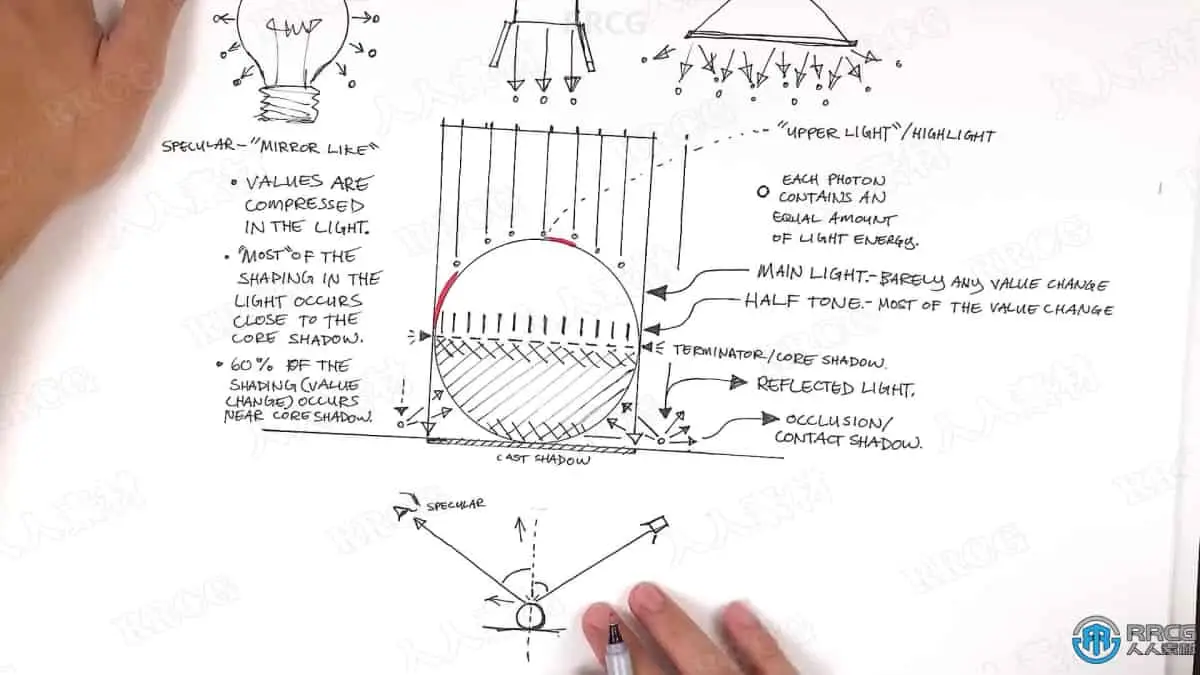 RRCG
SPECULAR-"MIRROR LIKE"
• VALUES ARE
COMPRESSED
IN THE LIGHT.
• "MOST" OF THE
SHAPING IN THE
LIGHT OCCURS
CLOSE TO THE
CORE SHADOW.
• 60% OF THE
SHADING (VALUE
CHANGE) OCCURS
NEAR CORE SHADOW.
"UPPER LIGHT"/HIGHLIGHT
EACH PHOTON
CONTAINS AN
EQUAL AMOUNT
OF LIGHT ENERGY.
MAIN LIGHT.-BARELY ANY VALUE CHANGE
HALF TONE.-MOST OF THE VALUE CHANGE
TERMINATOR/CORE SHADOW.
REFLECTED LIGHT.
OCCLUSION/
CONTACT SHADOW.
CAST SHADOW
SPECULAR
RRCG
人人素材